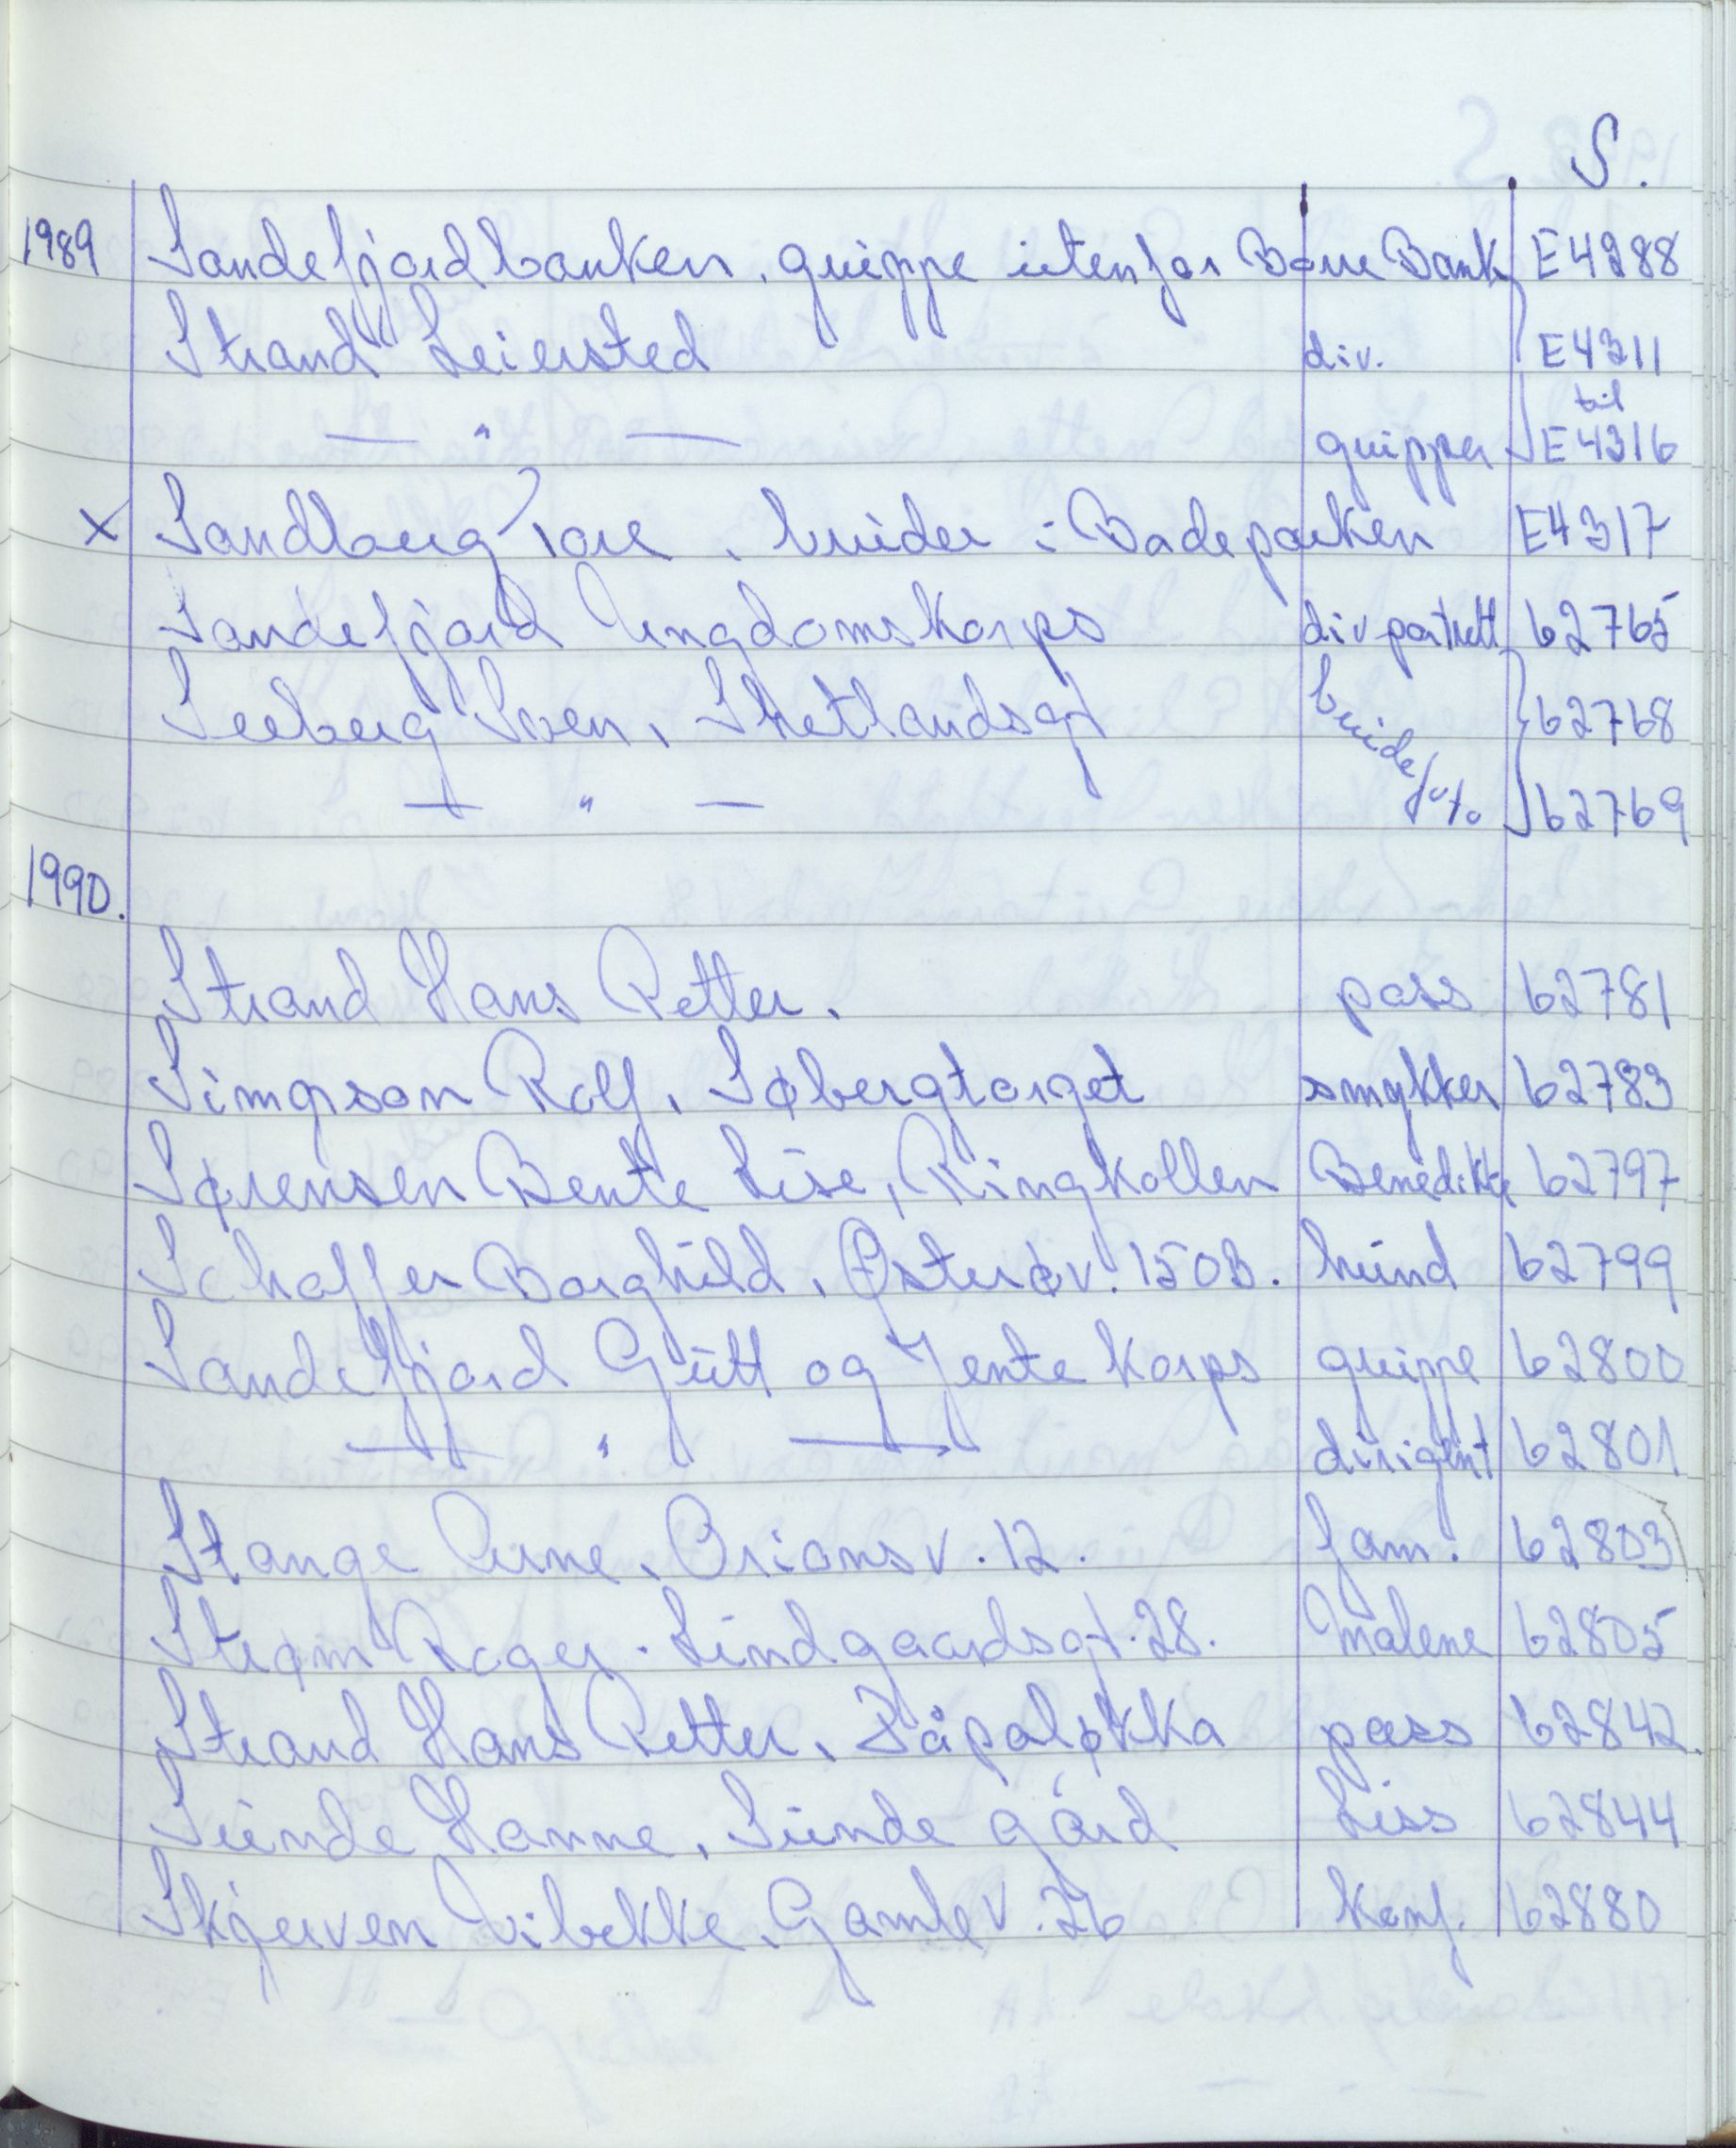 S.
1989 Sandefjordbanken, gruppe utenfor Bøve Bank E4288
Strand Leiersted div. E4311
til
— " — grupper E4316
x Sandberg Tore, bruder i Badeparken E4317
Sandefjord Ungdomskorps div portrett 62765
Seeberg Sven, Shetlandsgt brudefoto 62768
— " — 62769
1990.
Strand Hans Petter. pass 62781
Simonson Rolf, Søbergtorget smykker 62783
Sørensen Bente Lise, Ringkollen Benedikte 62797
Schaffer Borghild, Østerøv. 150B. hund 62799
Sandefjord Gutt og Jente korps gruppe 62800
— " — dirigent 62801
Stange Arne, Orions v. 12. fam. 62803
Strøm Roger. Lindgaardsgt. 28. Malene 62805
Strand Hans Petter, Båpaløkka pass 62842.
Sunde Hanne, Sunde gård Liss 62844
Skjerven Vibekke, Gamle v. 26 konf. 62880